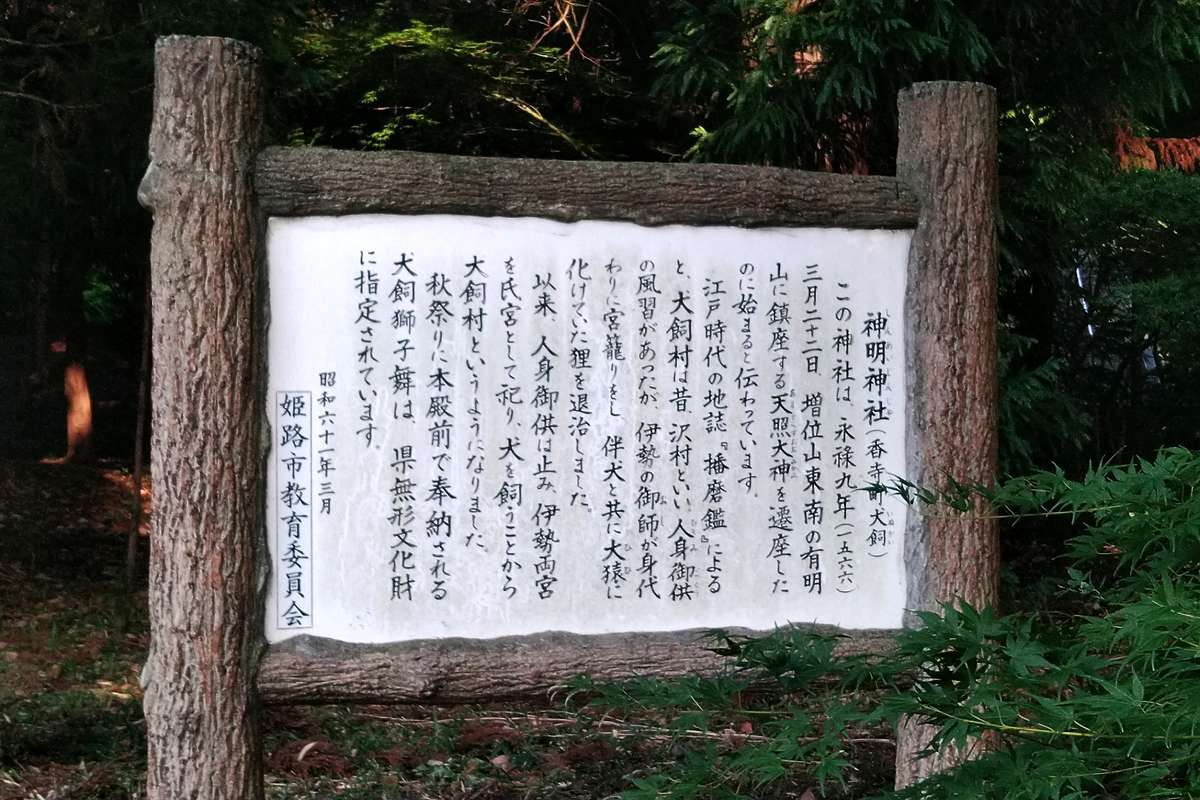 神明神社(香寺町犬飼)
この神社は、永禄九年(一五六六)
三月二十二日、増位山東南の有明
山に鎮座する天照大神を遷座した
のに始まると伝わっています。
江戸時代の地誌『播磨鑑』による
と、犬飼村は昔、沢村といい、人身御供
の風習があったが、伊勢の御師が身代
わりに宮籠りをし、伴犬と共に大猿に
化けていた狸を退治しました。
以来、人身御供は止み、伊勢両宮
を氏宮として祀り、犬を飼うことから
犬飼村というようになりました。
秋祭りに本殿前で奉納される
犬飼獅子舞は、県無形文化財
に指定されています。
昭和六十一年三月
姫路市教育委員会